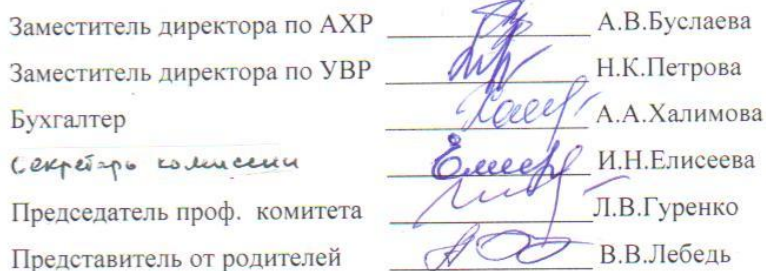 Заместитель директора по АХР А.В.Буслаева
Заместитель директора по УВР Н.К.Петрова
Бухгалтер А.А.Халимова
Секретарь комиссии И.Н.Елисеева
Председатель проф. комитета Л.В.Гуренко
Представитель от родителей В.В.Лебедь